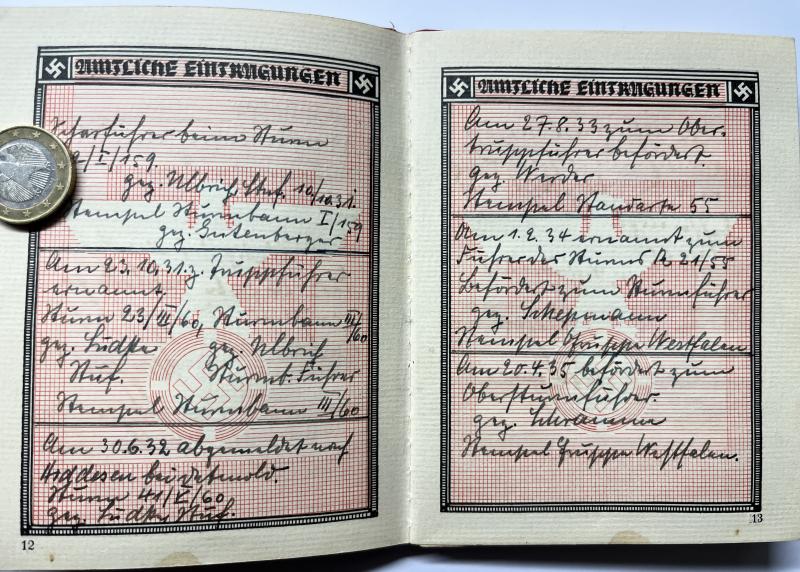 AMTLICHE EINTRAGUNGEN
Scharführer beim Sturm
2/I/159
gez. Ulbrich Stuf. 10/10.31.
Stempel Sturmbann I/159
gez. Gutenberger
Am 23.10.31. z. Truppführer
ernannt
Sturm 23/III/60, Sturmbann III/60
gez. Ludtke gez. Ulbrich
Stuf. Sturmb. Führer
Stempel Sturmbann III/60
Am 30.6.32 abgemeldet nach
Hiddesen bei Detmold.
Sturm 41/V/60
gez. Ludtke, Stuf.
12
AMTLICHE EINTRAGUNGEN
Am 27.8.33 zum Ober-
truppführer befördert.
gez. Werder
Stempel Standarte 55
Am 1.2.34 ernannt zum
Führer des Sturms R 21/55
Befördert zum Sturmführer
gez. Schepmann
Stempel Gruppe Westfalen
Am 20.4.35 befördert zum
Obersturmführer.
gez. Schramme
Stempel Gruppe Westfalen.
13